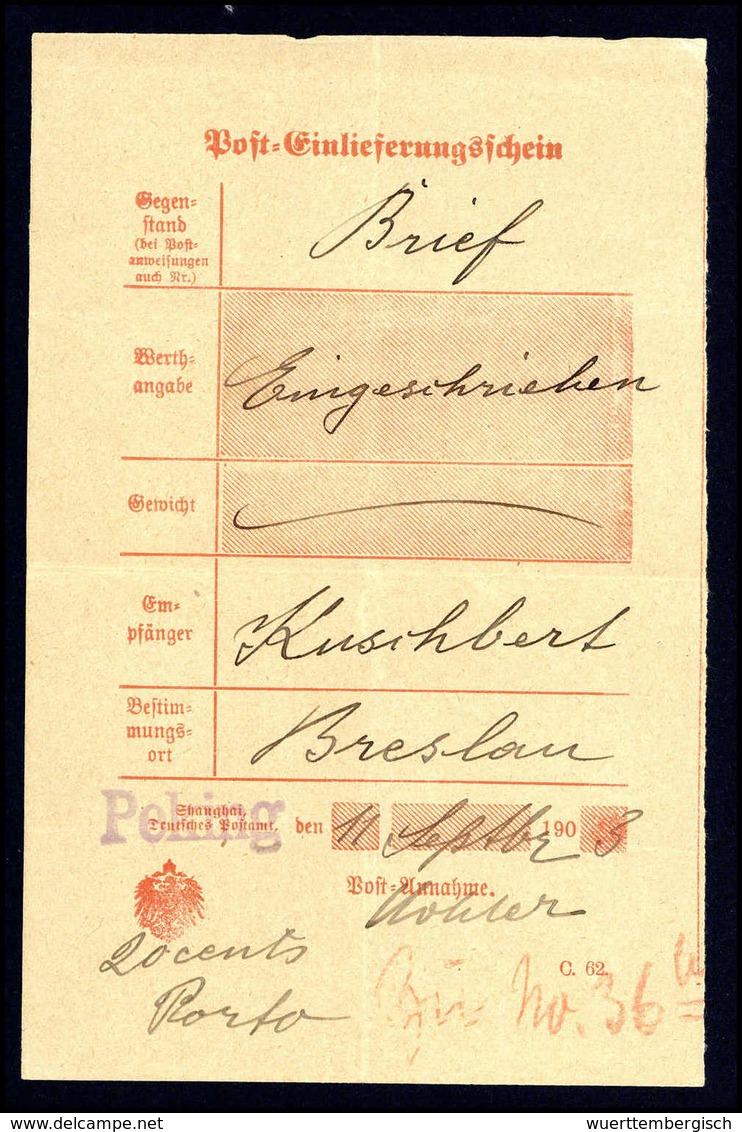 Post-Einlieferungsschein
Gegen-
stand
(bei Post-
anweisungen
auch Nr.)
Brief
Werth-
angabe
Eingeschrieben
Gewicht
Em-
pfänger
Kuschbert
Bestim-
mungs-
ort
Breslau
Peking
Shanghai,
Deutsches Postamt. den 11 Septbr 190 3
Post-Annahme.
20 cents
Porto
C. 62.
No. 36
© wuerttembergisch